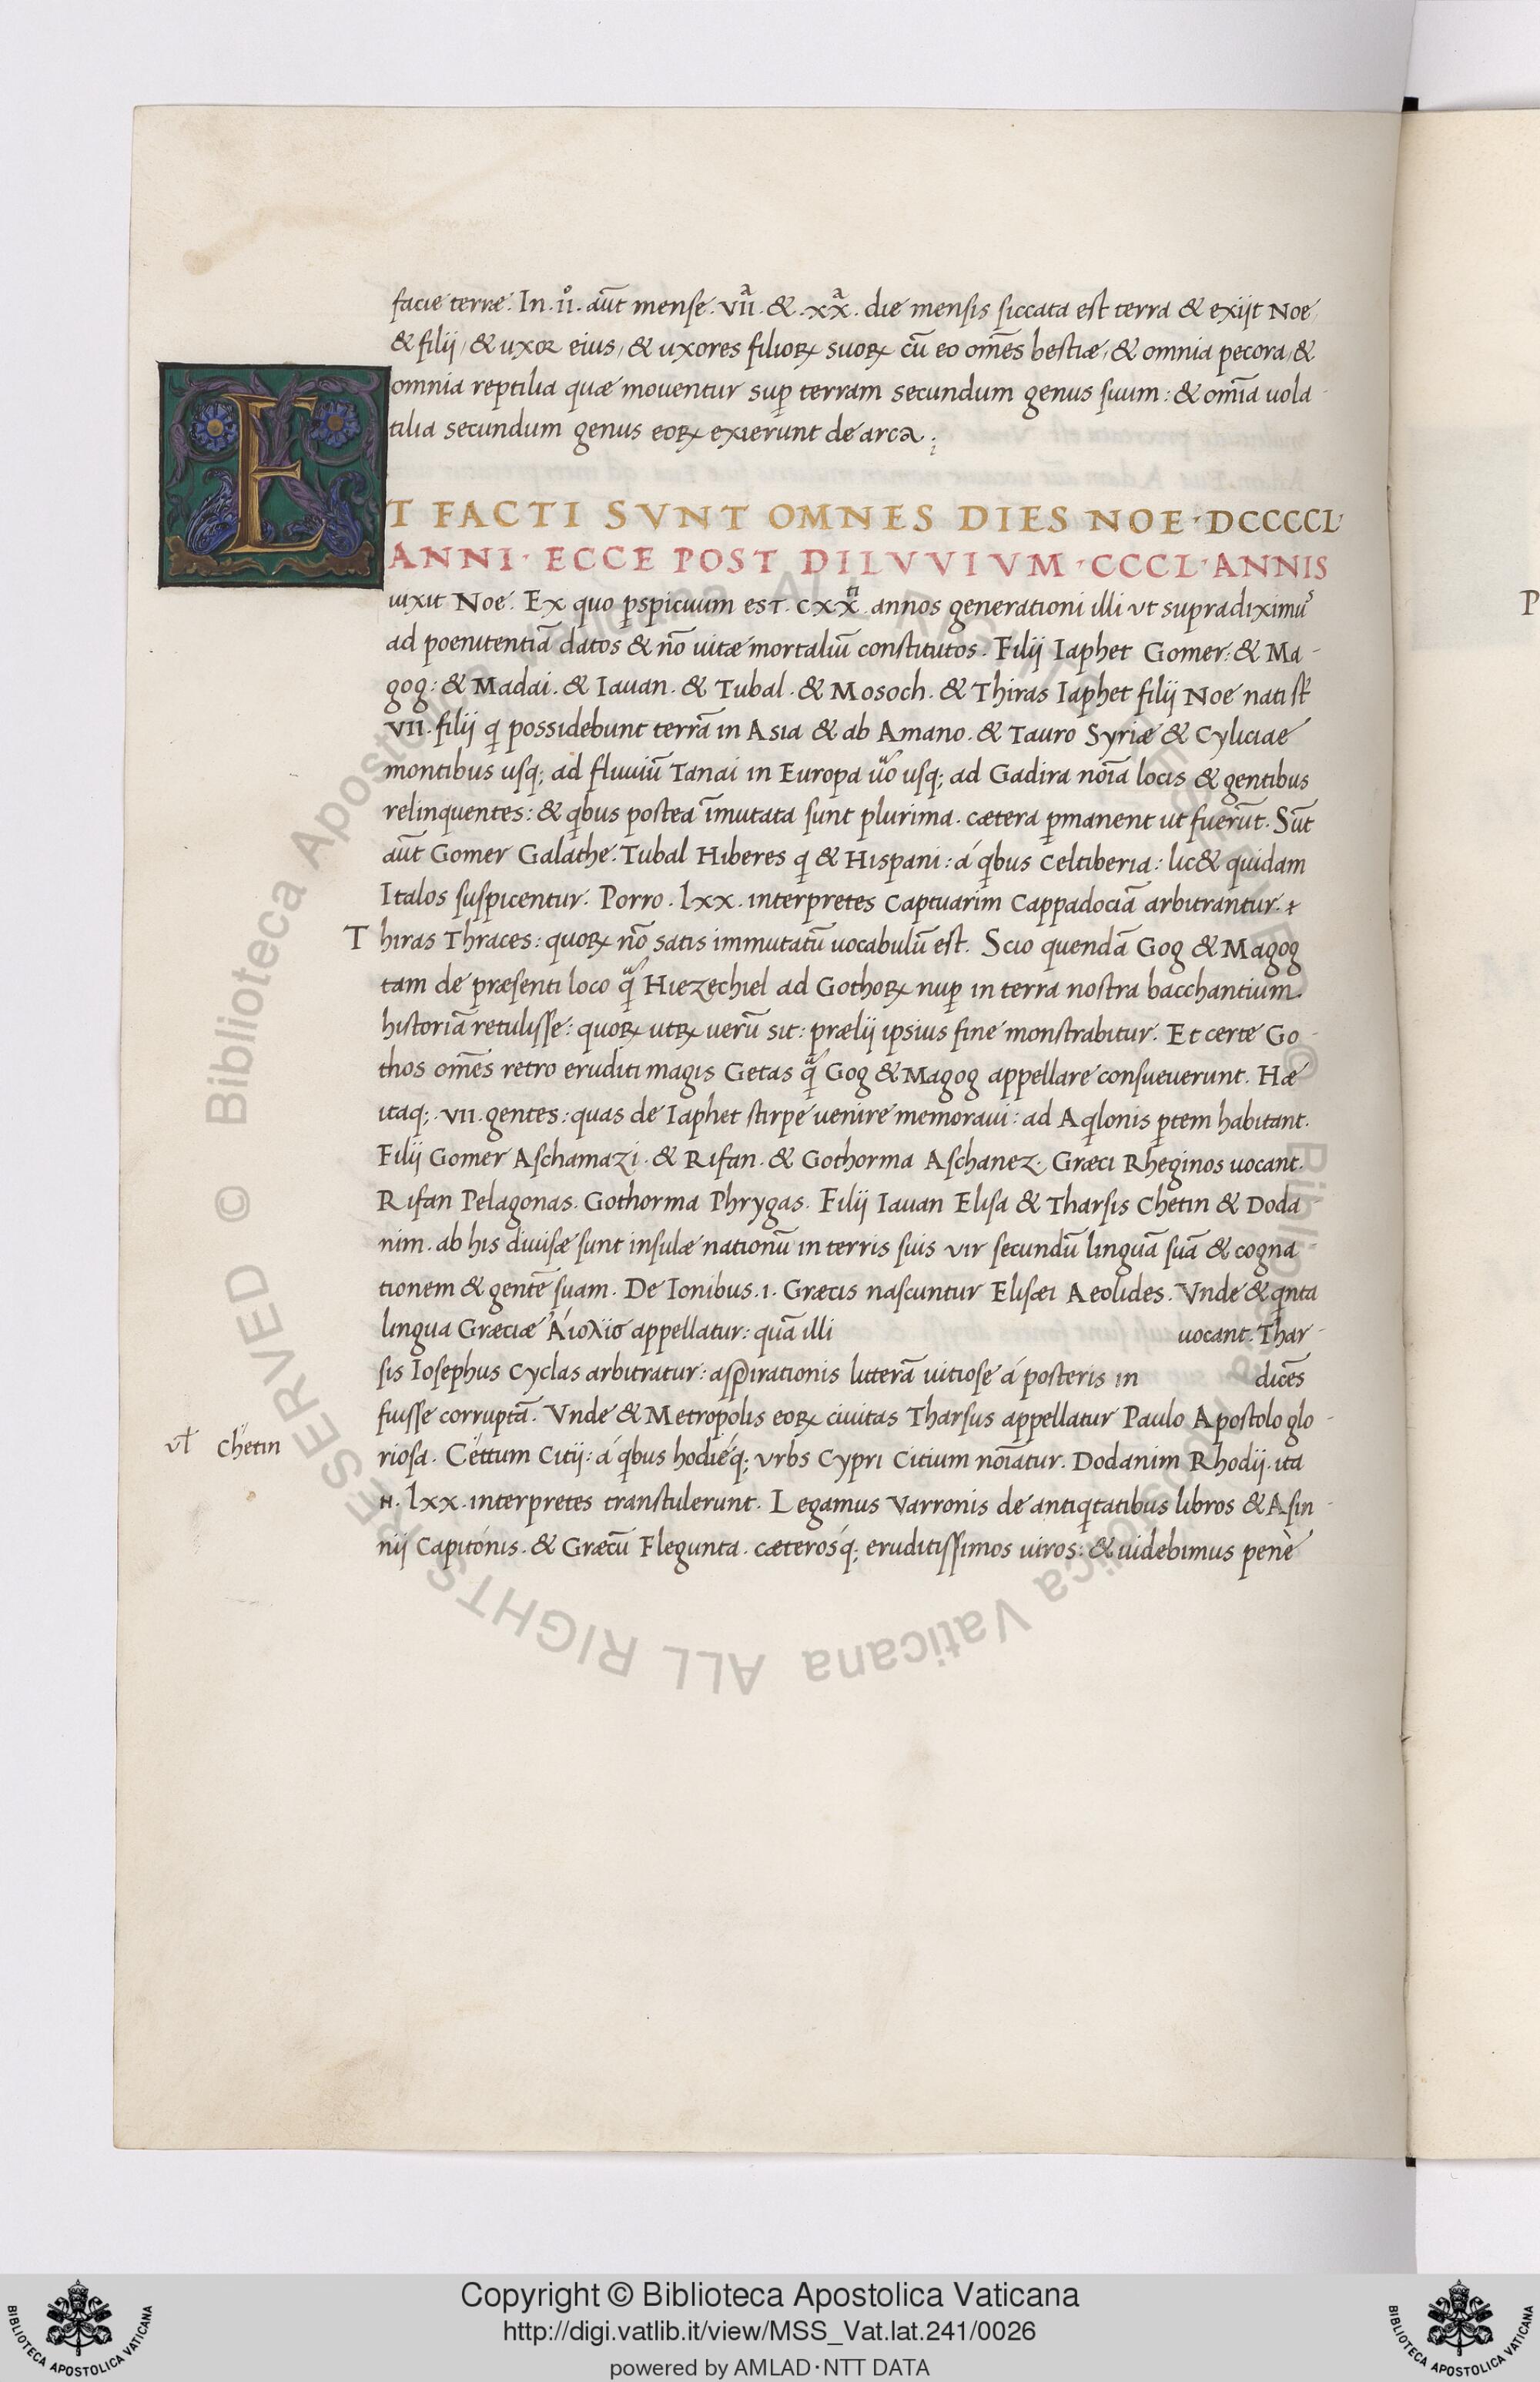 facie terræ. In .ii᷒. aūt mense .vii.ª & .xx.ª die mensis siccata est terra & exijt Noe,
& filij, & uxor eius, & uxores filioꝝ suoꝝ cū eo om̄es bestiæ, & omnia pecora, &
omnia reptilia quæ mouentur suꝑ terram secundum genus suum: & om̄ia uola-
tilia secundum genus eoꝝ exierunt de arca.
ET FACTI SVNT OMNES DIES NOE·DCCCCL·
ANNI· ECCE POST DILVVIVM·CCCL·ANNIS
uixit Noe. Ex quo ꝑspicuum est. cxx.ᵗⁱ annos generationi illi ut supradiximꝰ
ad poenitentiā datos & nō uitæ mortaliū constitutos. Filij Iaphet Gomer: & Ma-
gog: & Madai. & Iauan. & Tubal. & Mosoch. & Thiras Iaphet filij Noe nati st̄
VII. filij q possidebunt terrā in Asia & ab Amano. & Tauro Syriæ & Cyliciae
montibus usq; ad fluuiū Tanai in Europa uº usq; ad Gadira noīa locis & gentibus
relinquentes: & qbus postea īmutata sunt plurima. cætera ꝑmanent ut fuerūt. Sūt
aūt Gomer Galathe. Tubal Hiberes q & Hispani: á qbus Celtiberia: lic& quidam
Italos suspicentur. Porro .lxx. interpretes Captuarim Cappadociā arbitrantur.
Thiras Thraces: quoꝝ nō satis immutatū uocabulū est. Scio quendā Gog & Magog
tam de præsenti loco qᵃ̄ Hiezechiel ad Gothoꝝ nuꝑ in terra nostra bacchantium
historiā retulisse: quoꝝ utꝝ uerū sit: prælij ipsius fine monstrabitur. Et certe Go-
thos om̄es retro eruditi magis Getas qᵃ̄ Gog & Magog appellare consueuerunt. Hæ
itaq; .VII. gentes: quas de Iaphet stirpe uenire memoraui: ad Aqlonis ꝑtem habitant.
Filij Gomer Aschamazi. & Rifan. & Gothorma Aschanez. Græci Rheginos uocant.
Rifan Pelagonas. Gothorma Phrygas. Filij Iauan Elisa & Tharsis Chetin & Doda
nim. ab his diuisæ sunt insulæ nationū in terris suis vir secundū linguā suā & cogna-
tionem & gentē suam. De Ionibus .i. Græcis nascuntur Elisæi Aeolides. Vnde & qnta
lingua Græciæ Ἀίολἲσ appellatur: quā illi uocant. Thar-
sis Iosephus Cyclas arbitratur: aspirationis litterā uitiose á posteris in dicēs
fuisse corruptā. Vnde & Metropolis eoꝝ ciuitas Tharsus appellatur Paulo Apostolo glo-
vł Chetin
riosa. Cettum Citij: á qbus hodieq; vrbs Cypri Citium noīatur. Dodanim Rhodij. ita
.n. lxx. interpretes transtulerunt. Legamus Varronis de antiqtatibus libros & Asin-
nij Capitonis. & Græcū Flegunta. cæterosq; eruditissimos uiros: & uidebimus penè
P
Copyright © Biblioteca Apostolica Vaticana
http://digi.vatlib.it/view/MSS_Vat.lat.241/0026
powered by AMLAD·NTT DATA
BIBLIOTECA APOSTOLICA VATICANA
BIBLIOTECA APOSTOLICA VATICANA
© Biblioteca Apostolica Vaticana ALL RIGHTS RESERVED